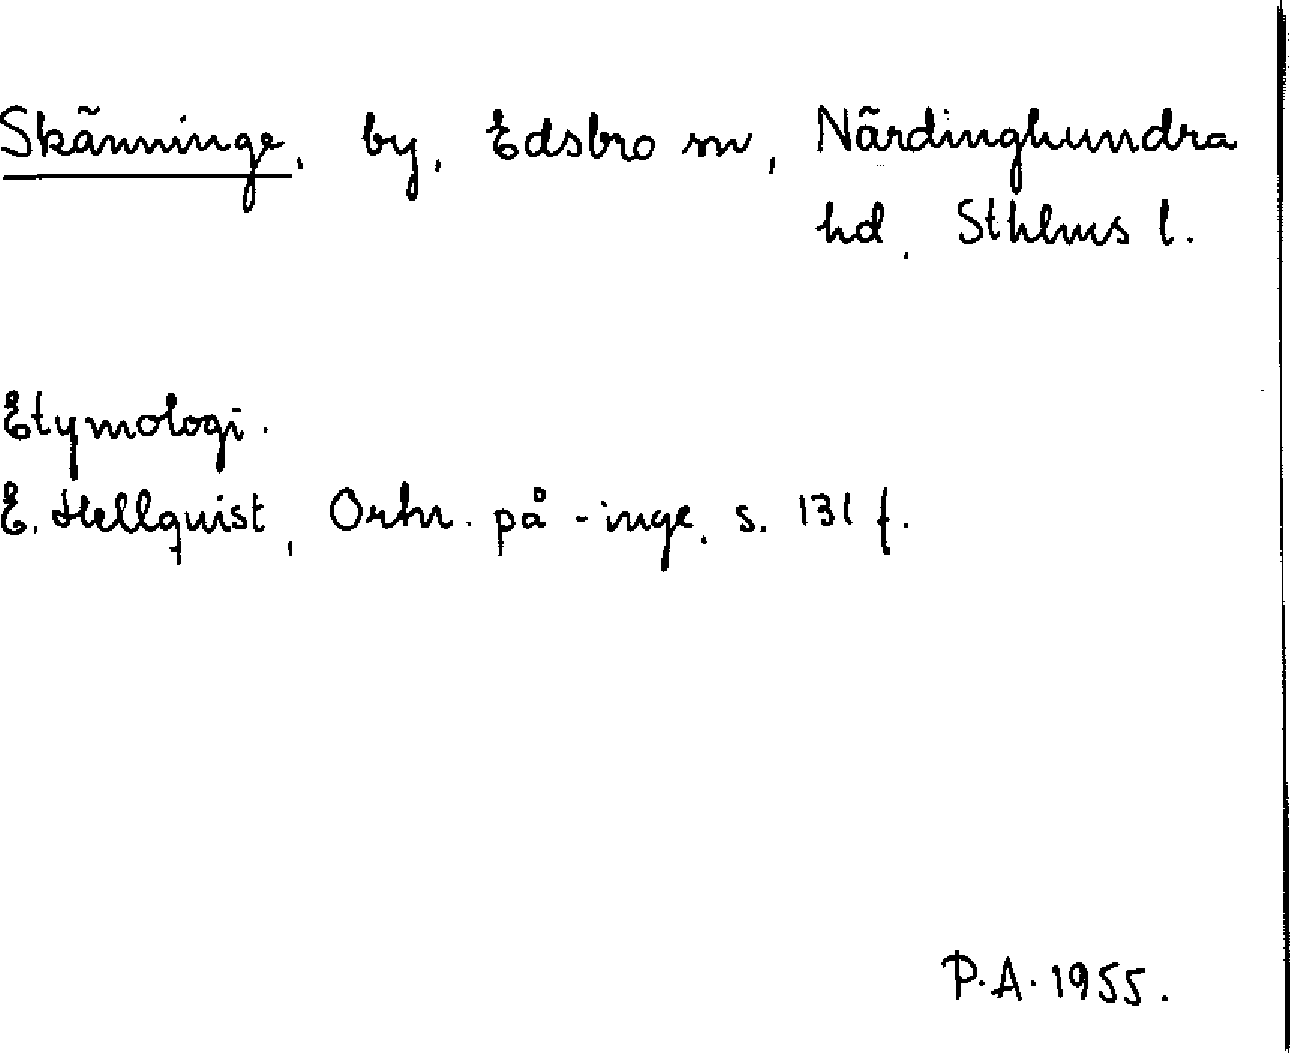 Skänninge, by, Edsbro sn, Närdinghundra
hd, Sthlms l.
Etymologi.
E. Hellquist, Ortn. på -inge, s. 131 f.
P.A. 1955.